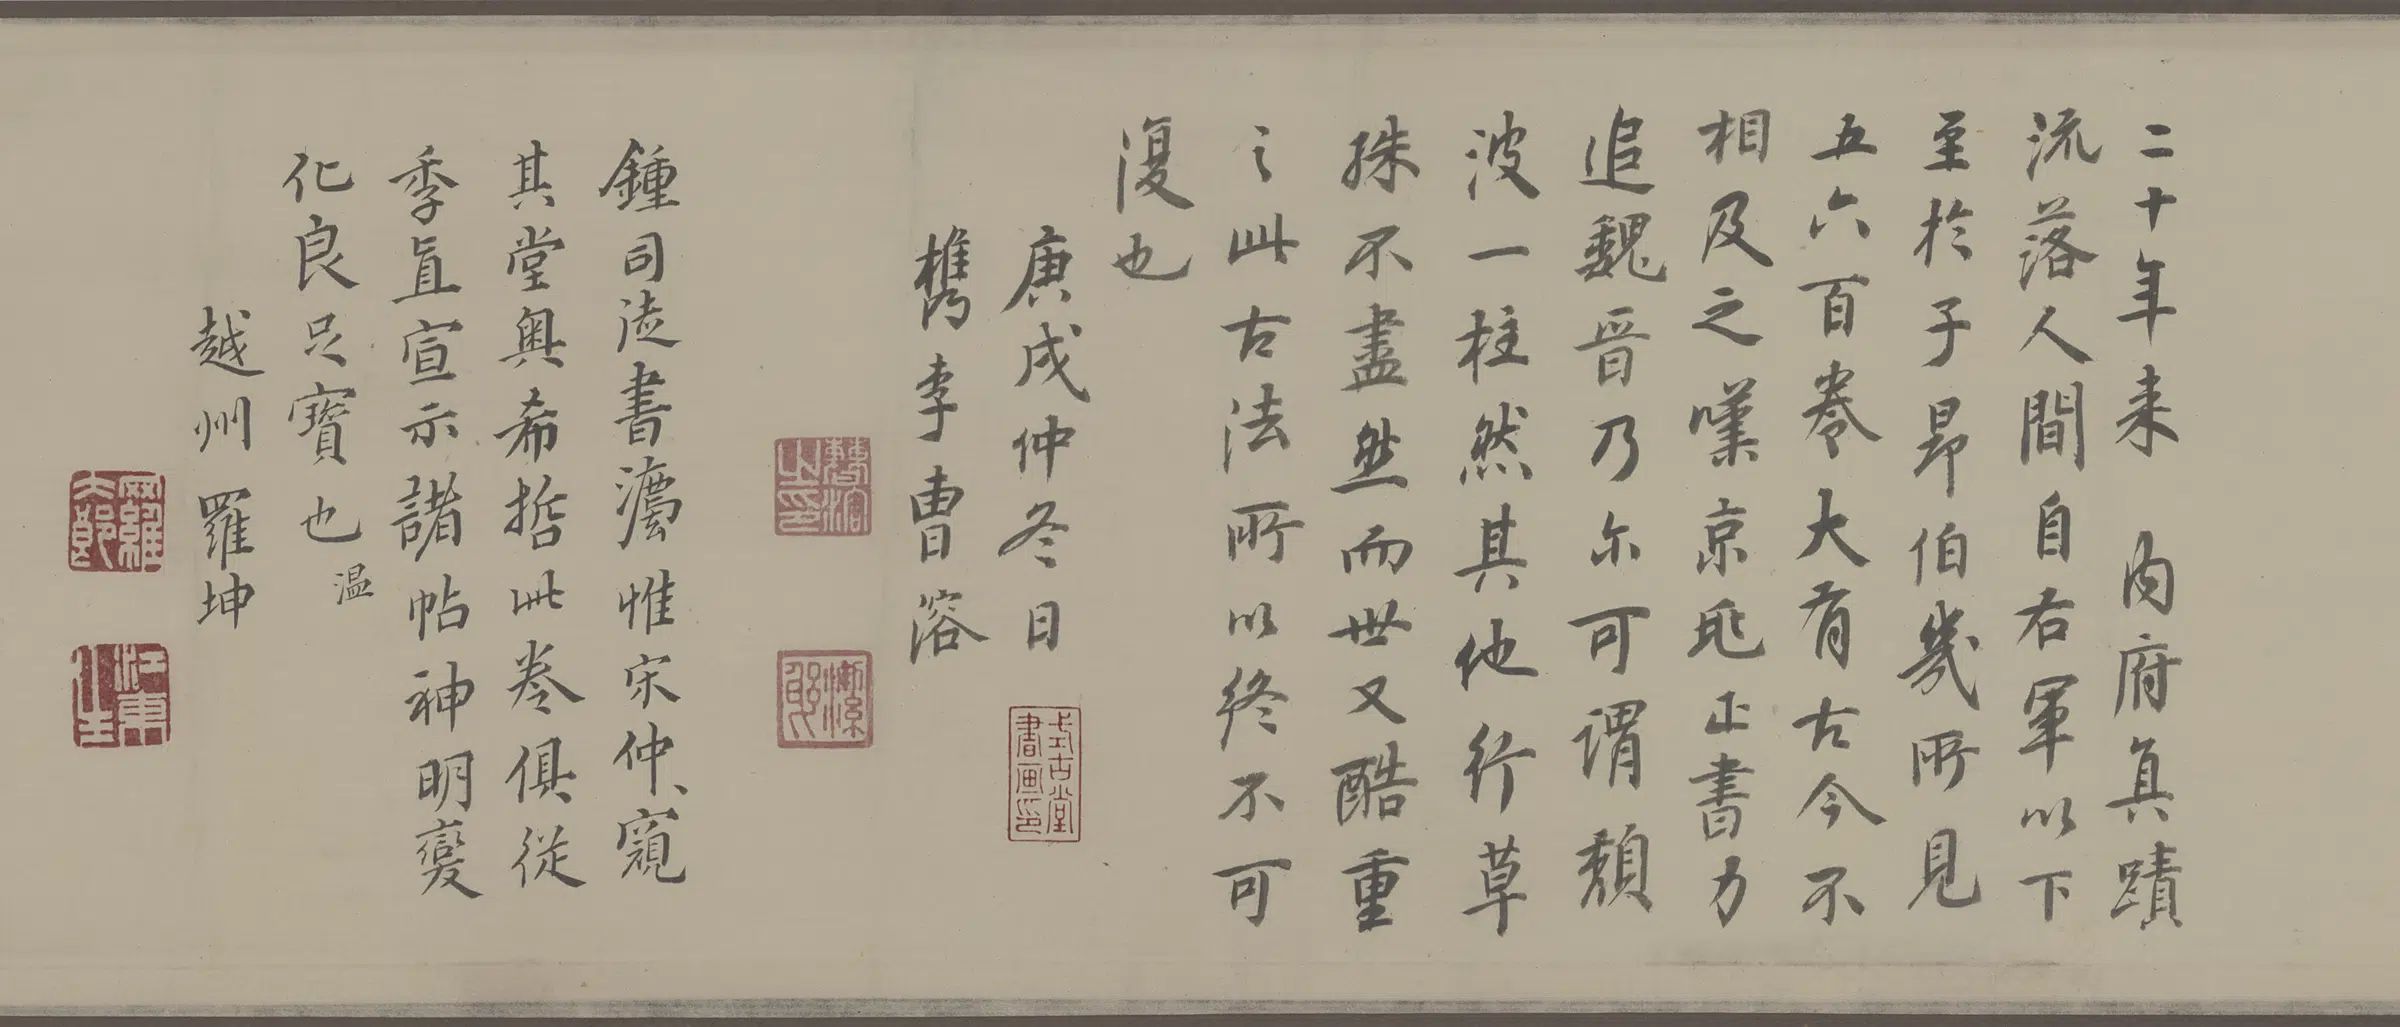 二十年来 内府真蹟
流落人間自右軍以下
至於子昂伯幾所見
五六百卷大有古今不
相及之嘆京兆正書力
追魏晉乃尓可謂頽
波一柱然其他行草
殊不盡然而世又酷重
之此古法所以終不可
復也
庚戌仲冬日
檇李曹溶
式古堂
書画印
曹溶
之印
潔
躬
鍾司徒書灋惟宋仲窺
其堂奧希哲此卷俱從
季直宣示諸帖神明變
化良足寶也 温
越州羅坤
羅
大郎
江東